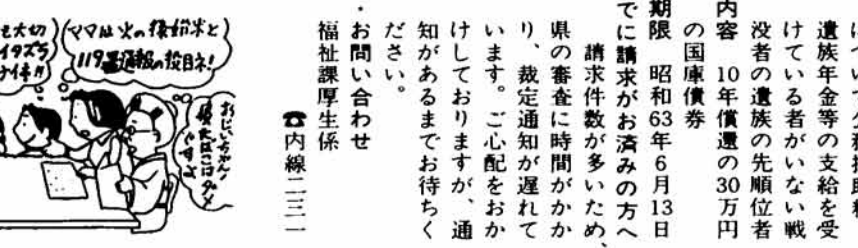 遺族年金等の支給を受
けている者がいない戦
没者の遺族の先順位者
内容 10年償還の30万円
の国庫債券
期限 昭和63年6月13日
でに請求がお済みの方へ
請求件数が多いため、
県の審査に時間がかか
り、裁定通知が遅れて
います。ご心配をおか
けしておりますが、通
知があるまでお待ちく
ださい。
・お問い合わせ
福祉課厚生係
☎内線二三一
おじいちゃん!
ママは火の後始末と
119番通報の役目ネ!
も大切